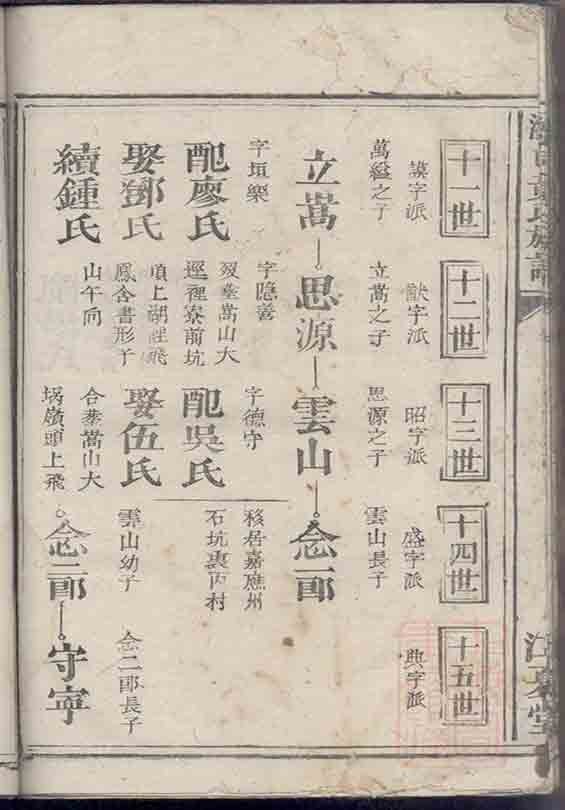 十一世
十二世
十三世
十四世
十五世
謨字派
猷字派
昭字派
盛字派
典字派
萬縊之子
立嵩之子
思源之子
雲山長子
立嵩
思源
雲山
念一郎
字垣樂
字隱善
字德守
移居嘉應州
石坑裏丙村
配廖氏
歿塟嵩山大
逕裡寮前坑
配吳氏
娶鄧氏
項上湖裡飛
鳳含書形子
山午向
娶伍氏
雲山幼子
念二郎長子
續鍾氏
合塟嵩山大
堝嶺頭上飛
念二郎
守寧
族譜
江夏堂